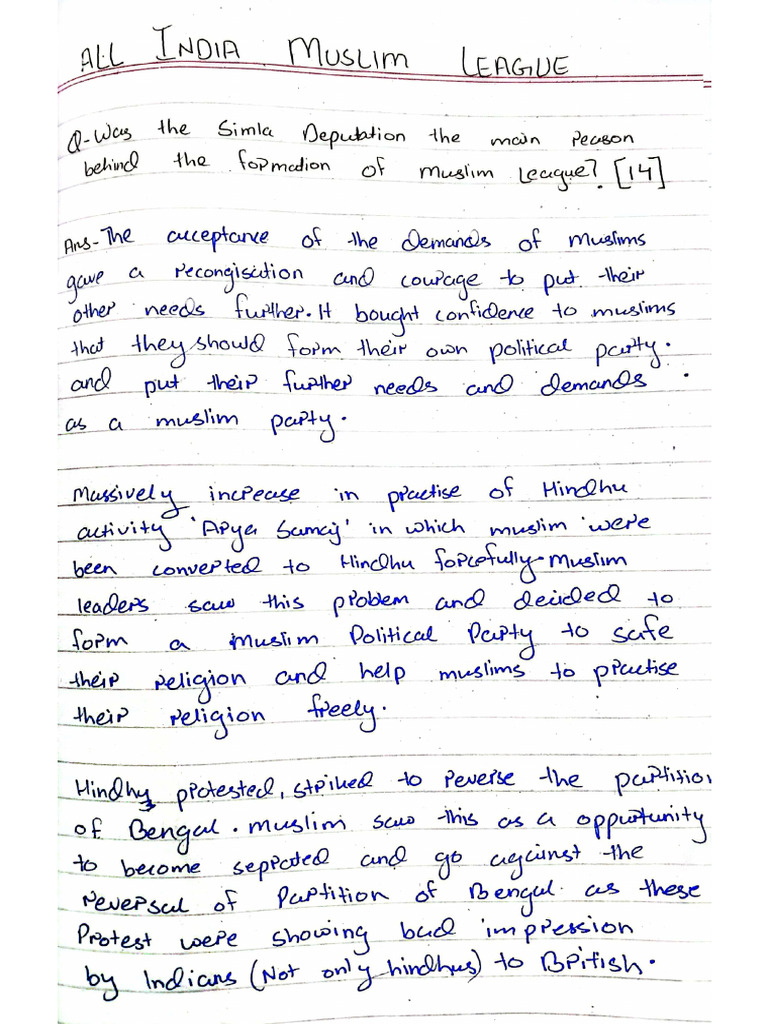 ALL INDIA MUSLIM LEAGUE
Q-Was the Simla Deputation the main reason
behind the formation of muslim League? [14]
Ans-The acceptance of the demands of muslims
gave a recongisation and courage to put their
other needs further. It bought confidence to muslims
that they should form their own political party.
and put their further needs and demands
as a muslim party.
Massively increase in practise of Hindhu
activity 'Arya Samaj' in which muslim were
been converted to Hindhu forcefully. Muslim
leaders saw this problem and decided to
form a muslim Political Party to safe
their religion and help muslims to practise
their religion freely.
Hindhus protested, striked to reverse the partition
of Bengal. muslim saw this as a oppurtunity
to become seprated and go against the
reversal of Partition of Bengal as these
Protest were showing bad impression
by Indians (Not only hindhus) to British.